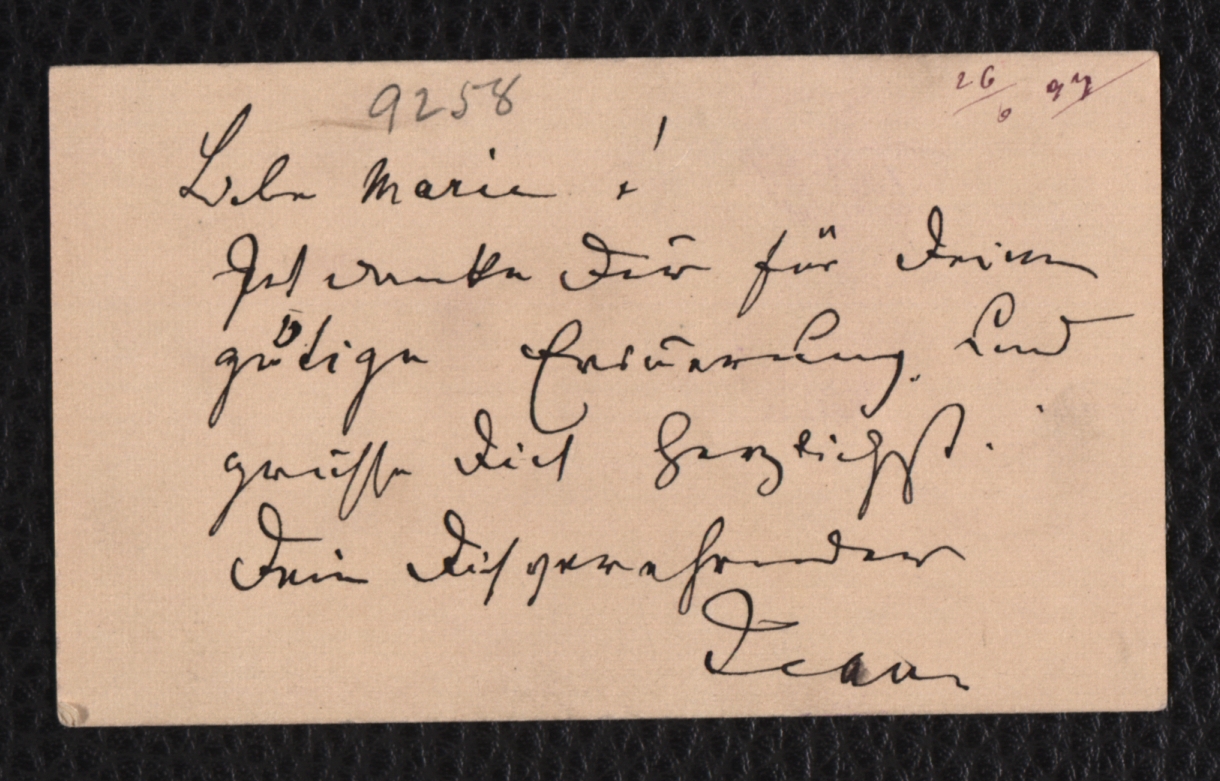 9258
26/6 97
Liebe Marie!
Ich danke Dir für Deine
gütige Erinnerung und
grüsse Dich herzlichst.
Dein Dich verehrender